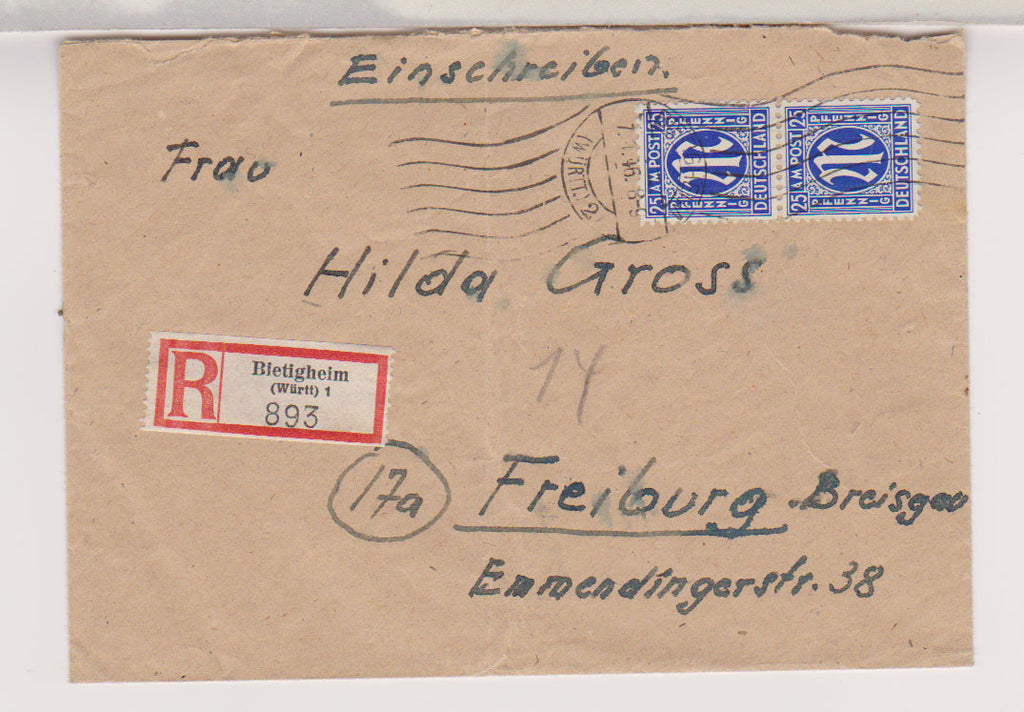 Einschreiben.
Frau
Hilda Gross
(WÜRTT.) 2
25 AM POST PFENNIG PFENNIG DEUTSCHLAND 25
25 AM POST PFENNIG PFENNIG DEUTSCHLAND 25
R Bietigheim
(Württ) 1
893
14
17a Freiburg. Breisgau
Emmendingerstr. 38